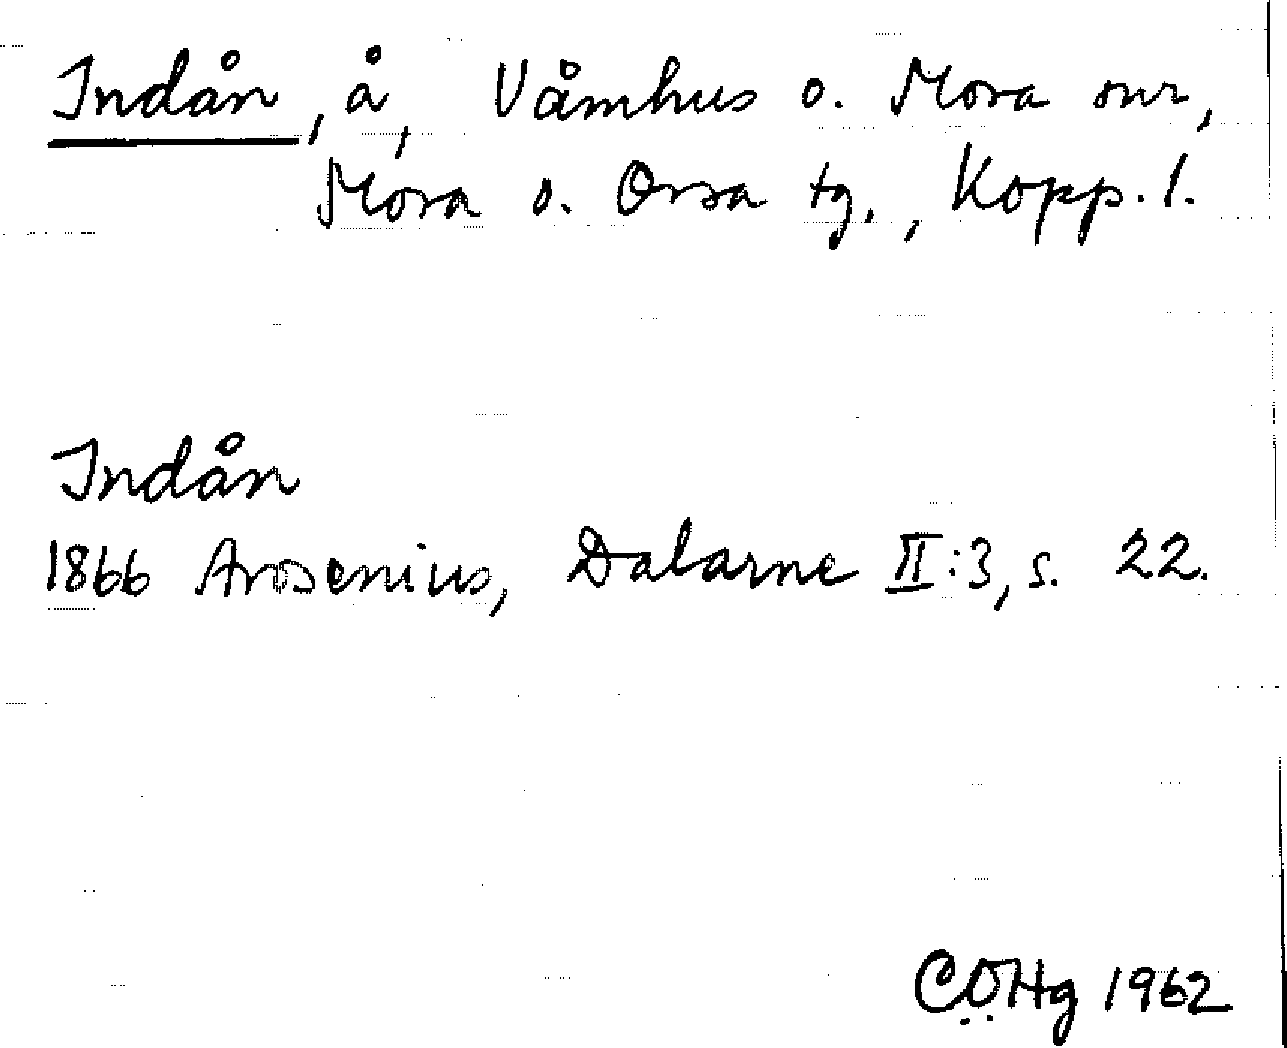 Indån, å, Våmhus o. Mora snr,
Mora o. Orsa tg., Kopp. l.
Indån
1866 Arosenius, Dalarne II:3, s. 22.
CÖHg 1962